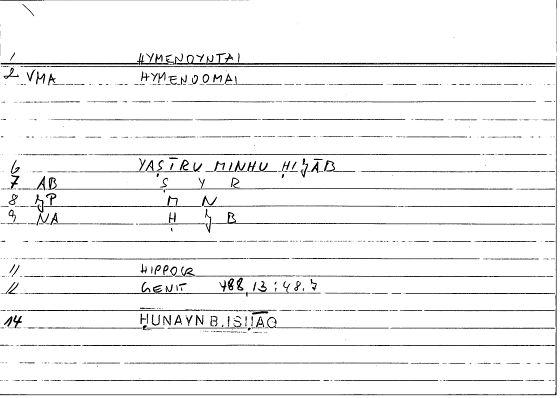 1 HYMENOYNTAI
2 VMA HYMENOOMAI
6 YAṢĪRU MINHU ḤIǦĀB
7 AB Ṣ Y R
8 ǦP M N
9 NA Ḥ Ǧ B
11 HIPPOCR
12 GENIT 488,13:48.7
14 ḤUNAYN B.ISḤĀQ